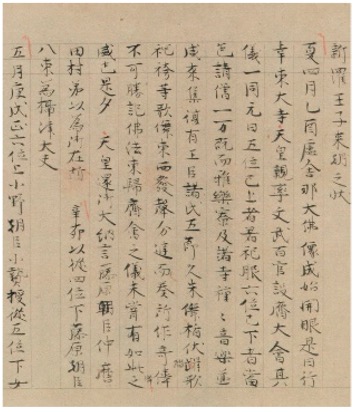 新羅王子来朝之状
夏四月乙酉盧舎那大佛像成始開眼是日行
幸東大寺天皇親率文武百官設齋大會其
儀一同元日五位已上者著礼服六位已下者當
色請僧一万既而雅樂寮及諸寺種々音樂並
咸来集復有王臣諸氏五節久米儛楯伏踏歌
袍袴等歌儛東西發聲分庭而奏所作奇偉
不可勝記佛法東歸齋會之儀未嘗有如此之
盛也是夕 天皇還御大納言藤原朝臣仲麿
田村第以為御在所 辛卯以從四位下藤原朝臣
八束為攝津大夫
五月庚戌正六位上小野朝臣小贄授從五位下女